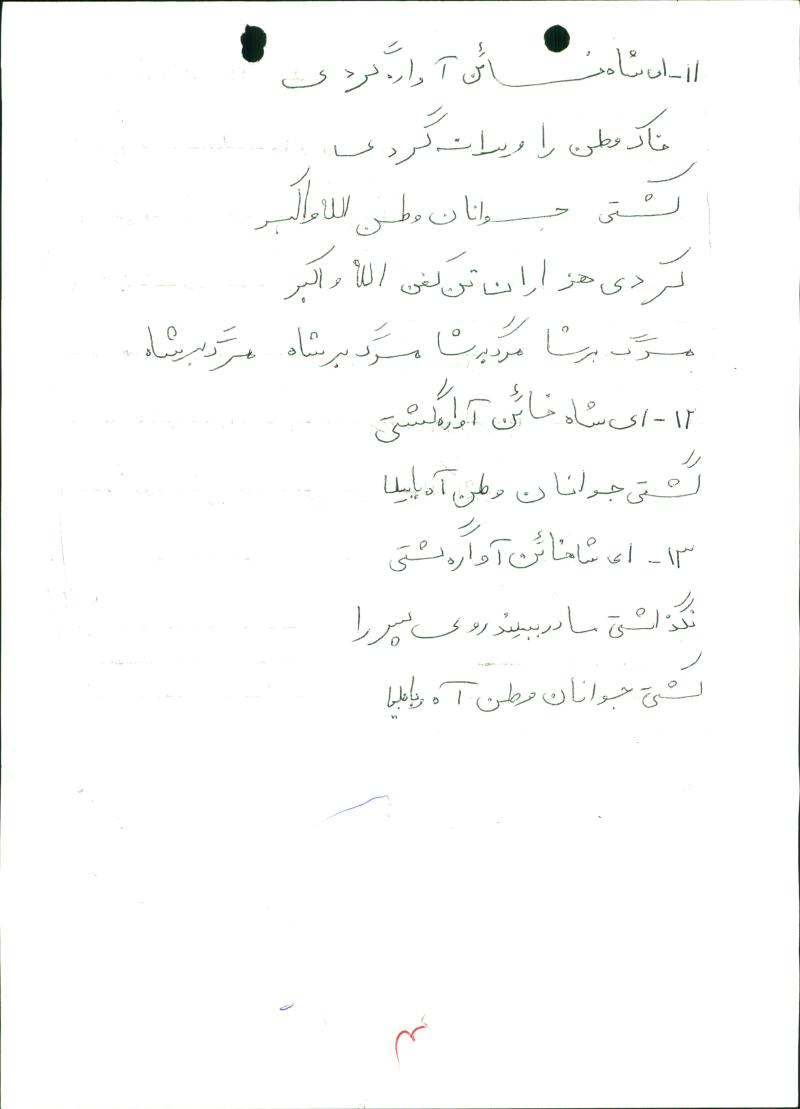 ۱۱- ای شاه خائن آواره گردی
خاک وطن را ویران گردی
کشتی جوانان وطن اللاواکبر
کردی هزاران تن کفن اللاواکبر
مرگ برشا مرگ برشا مرگ برشاه مرگ برشاه
۱۲- ای شاه خائن آواره گشتی
کشتی جوانان وطن آه
۱۳- ای شاه خائن آواگره شتی
نگذاشتی مادر ببیند روی پسر را
کشتی جوانان وطن آه